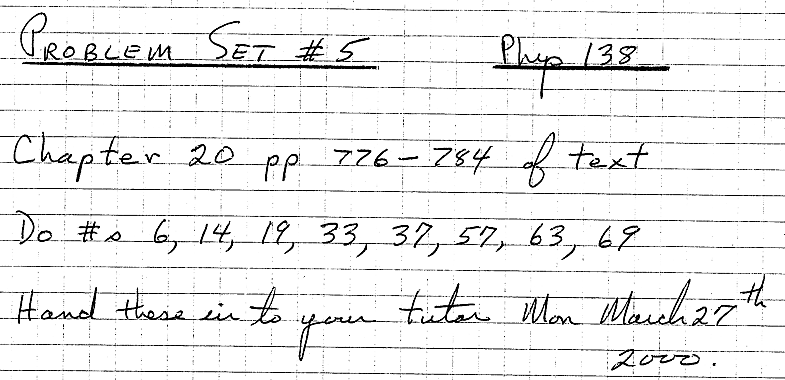 PROBLEM SET # 5 Phys 138
Chapter 20 pp 776 - 784 of text
Do #s 6, 14, 19, 33, 37, 57, 63, 69
Hand these in to your tutor Mon March 27th
2000.